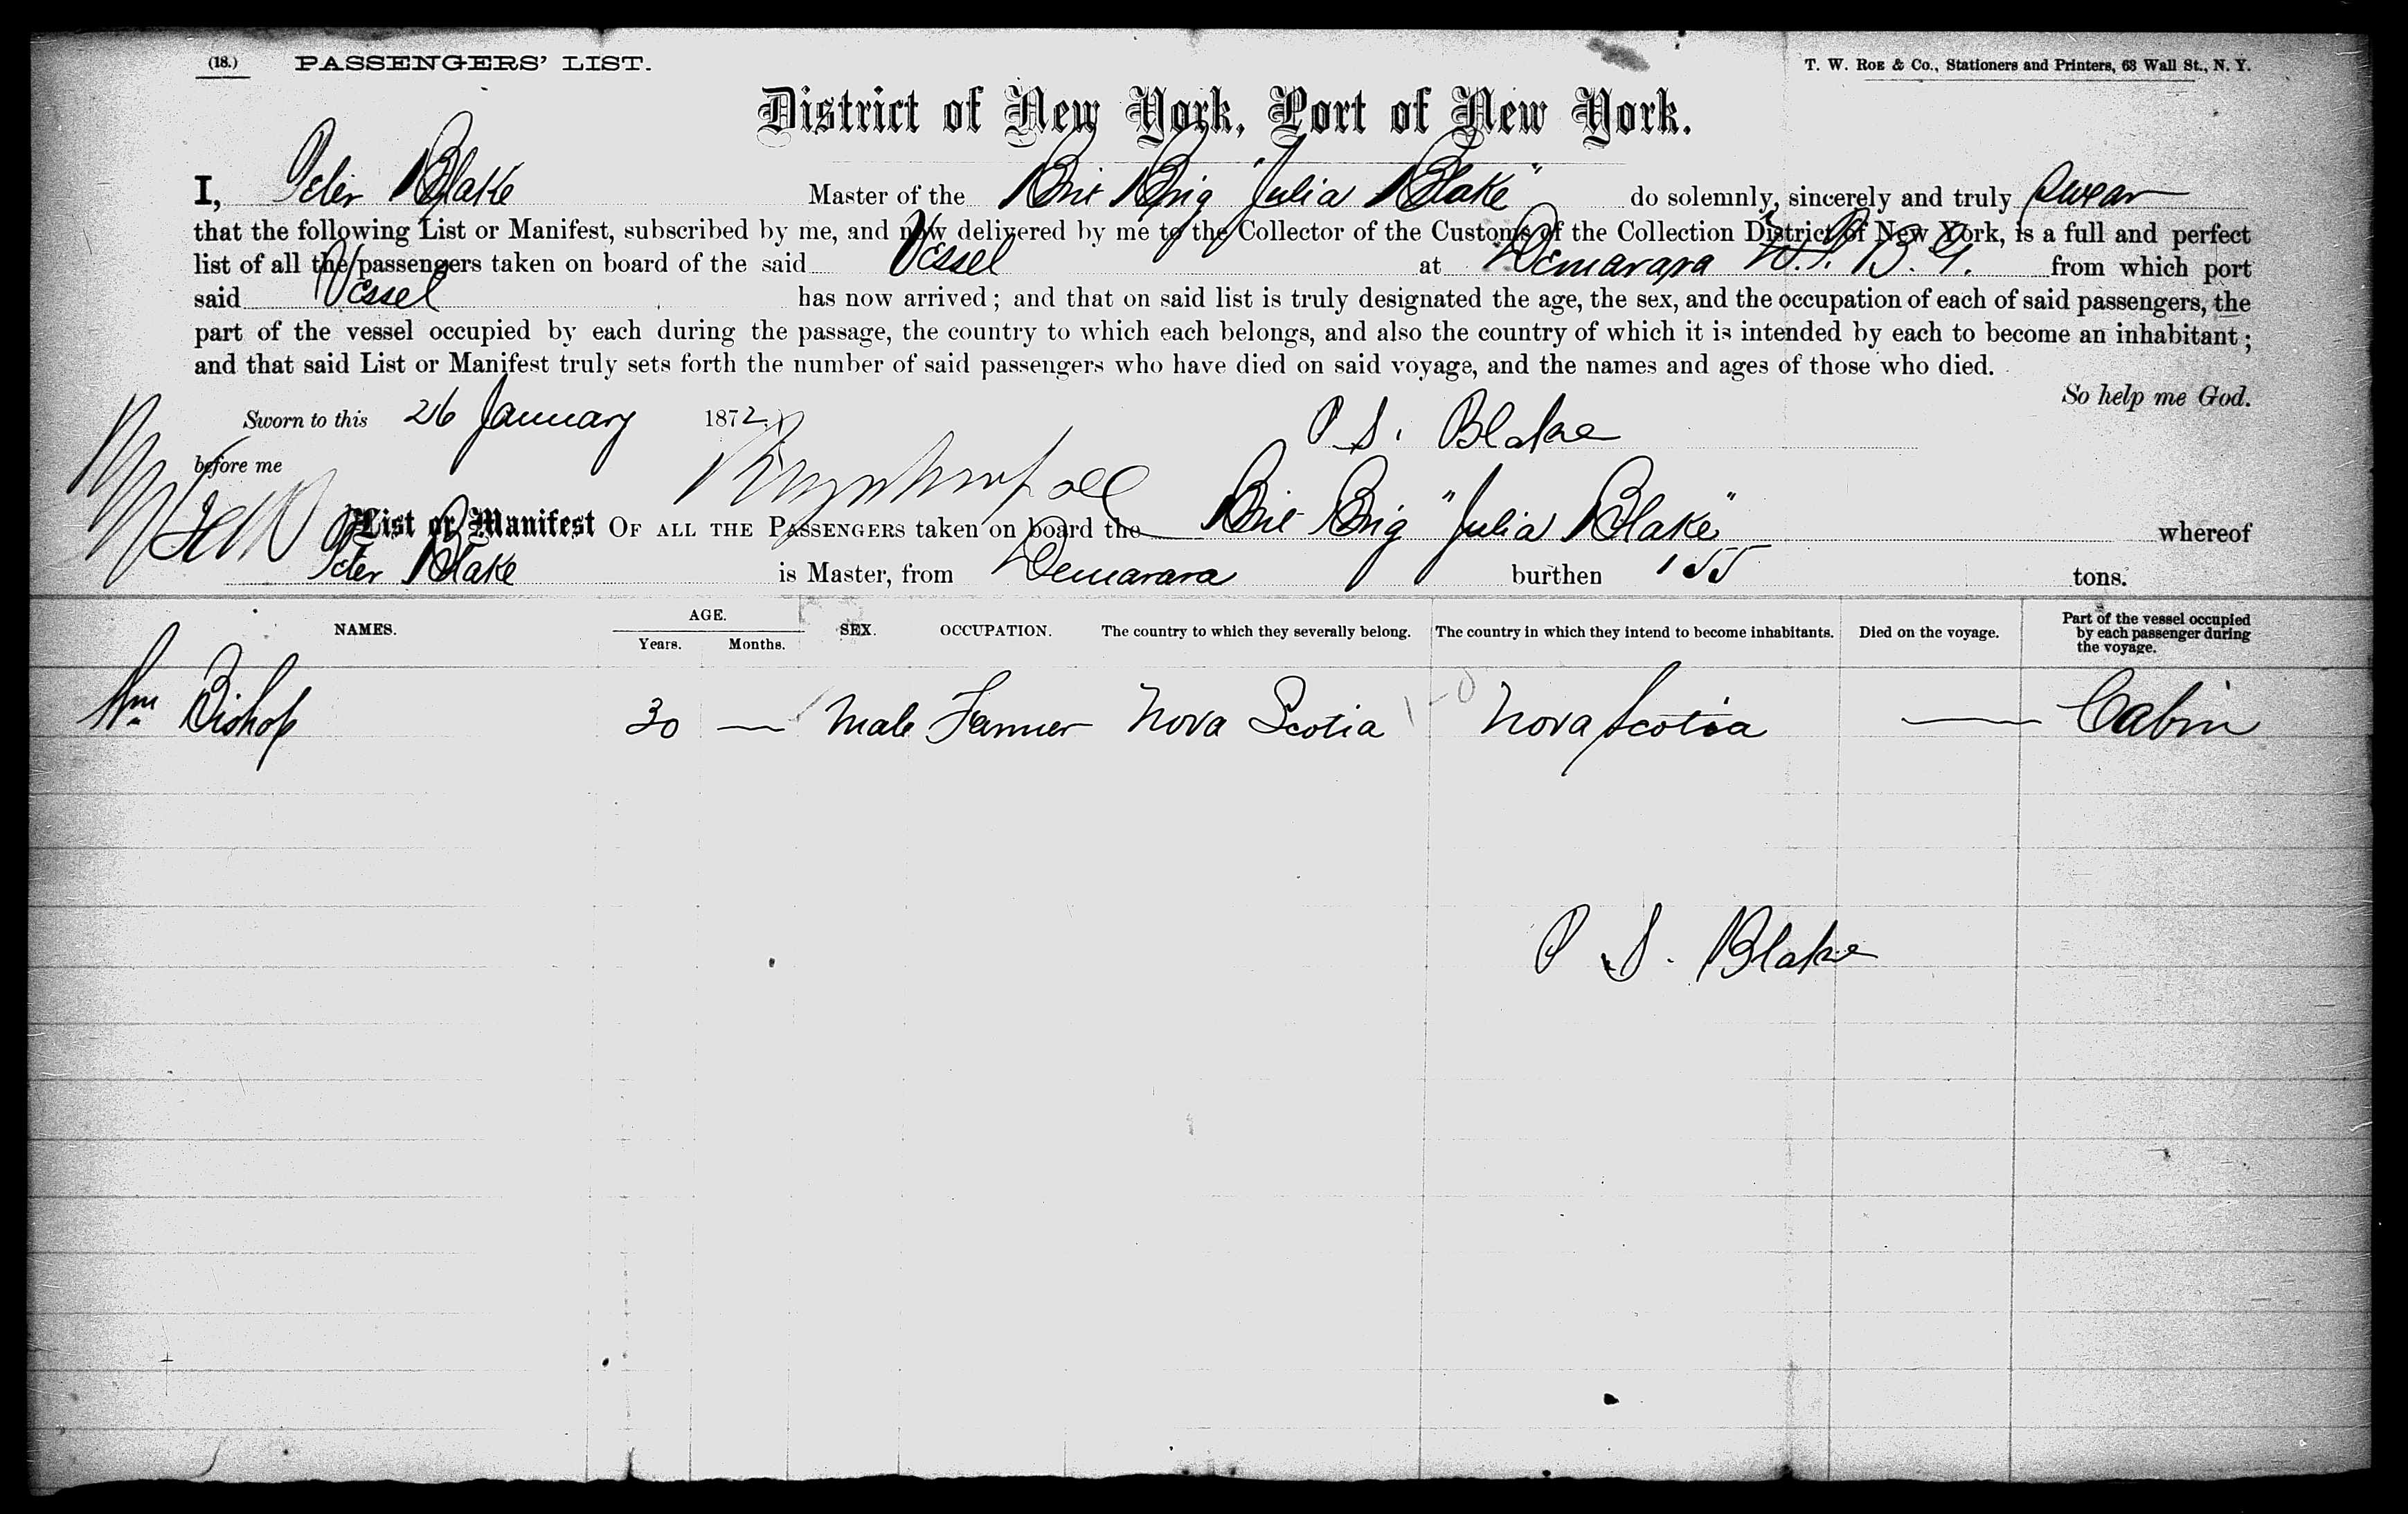 (18.) PASSENGERS' LIST. T. W. Roe & Co., Stationers and Printers, 63 Wall St., N. Y.
District of New York, Port of New York.
I, Peter Blake Master of the Brit Brig "Julia Blake" do solemnly, sincerely and truly swear
that the following List or Manifest, subscribed by me, and now delivered by me to the Collector of the Customs of the Collection District of New York, is a full and perfect
list of all the passengers taken on board of the said Vessel at Demarara from which port
said Vessel has now arrived; and that on said list is truly designated the age, the sex, and the occupation of each of said passengers, the
part of the vessel occupied by each during the passage, the country to which each belongs, and also the country of which it is intended by each to become an inhabitant;
and that said List or Manifest truly sets forth the number of said passengers who have died on said voyage, and the names and ages of those who died.
So help me God.
Sworn to this 26 January 1872. P S. Blake
before me
List or Manifest OF ALL THE PASSENGERS taken on board the Brit Brig "Julia Blake" whereof
Peter Blake is Master, from Demarara burthen 155 tons.
NAMES. AGE. Years. Months. SEX. OCCUPATION. The country to which they severally belong. The country in which they intend to become inhabitants. Died on the voyage. Part of the vessel occupied by each passenger during the voyage.
Wm Bishop 30 — Male Farmer Nova Scotia Nova Scotia — Cabin
P S. Blake